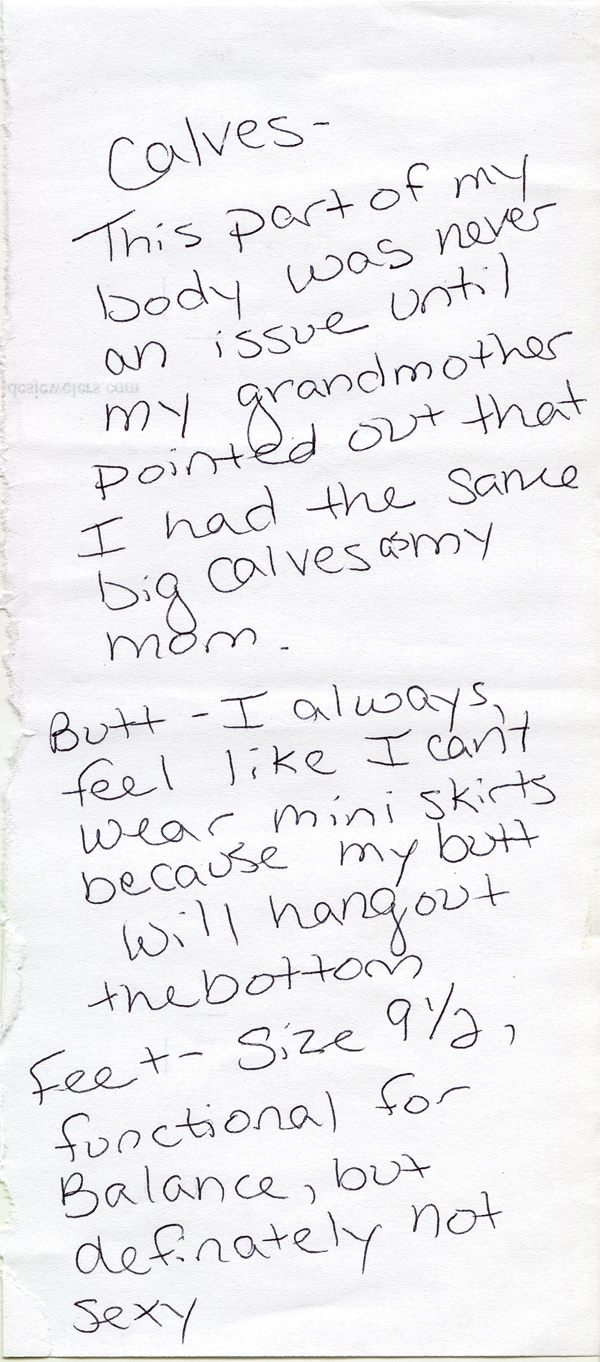 Calves-
This part of my
body was never
an issue until
my grandmother
pointed out that
I had the same
big calves as my
mom.
Butt - I always
feel like I can't
wear mini skirts
because my butt
will hang out
the bottom
Feet - Size 9 1/2,
functional for
Balance, but
definately not
sexy